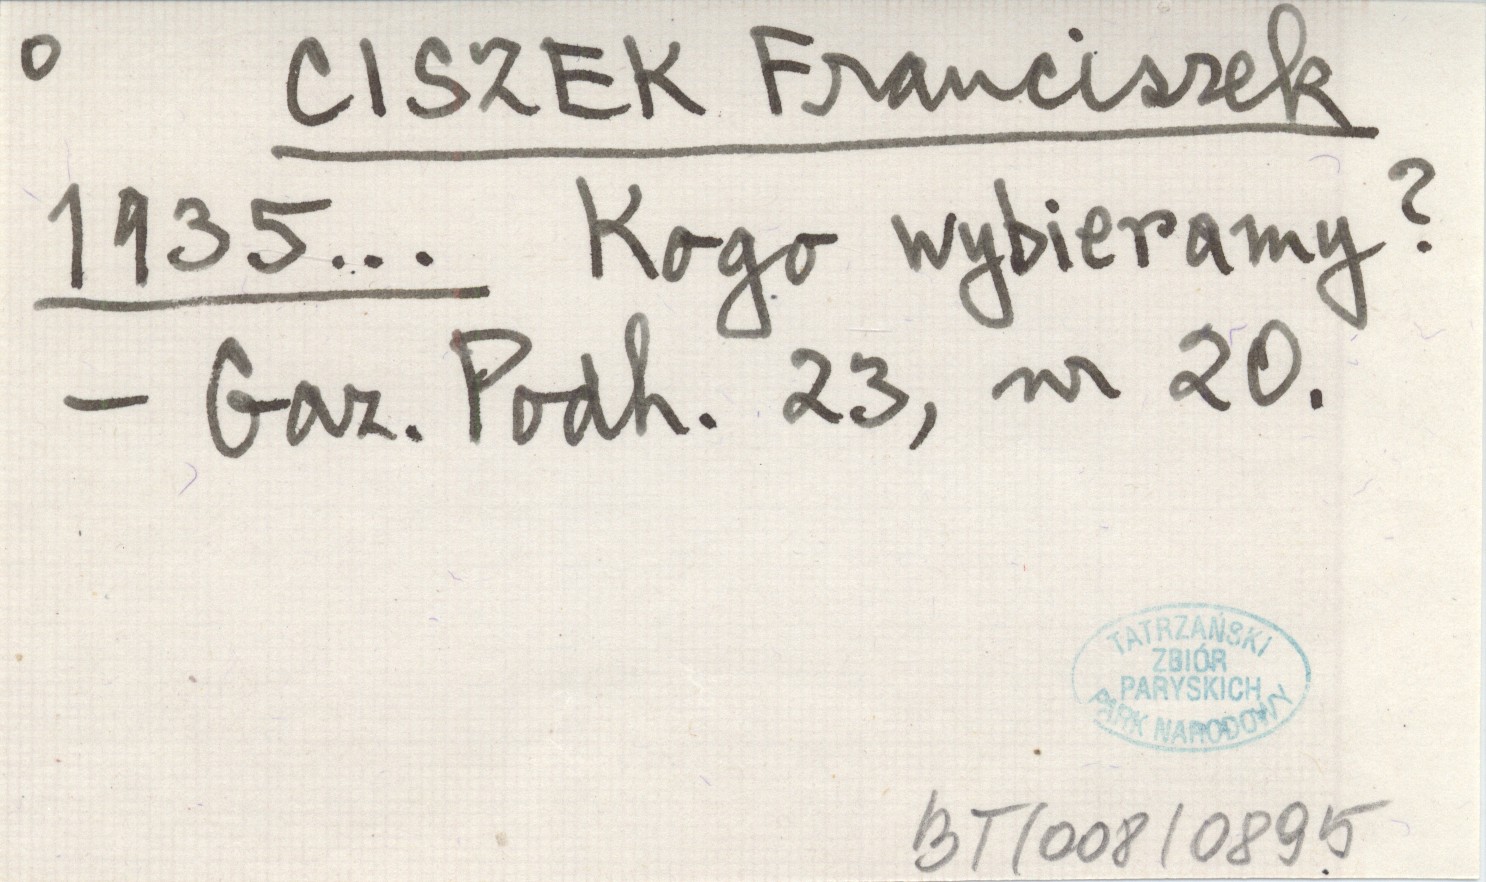 o CISZEK Franciszek
1935... Kogo wybieramy?
- Gaz. Podh. 23, nr 20.
TATRZAŃSKI
ZBIÓR
PARYSKICH
PARK NARODOWY
BT/008/0895